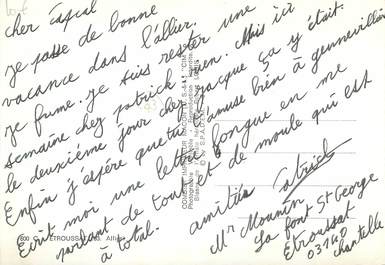 cher Pascal
je passe de bonne
vacance dans l'allier.
je fume. je suis rester une
semaine chez patrick rien. Mais ici
le deuxième jour chez jacque ça y était.
Enfin j'espére que tu t'amuse bien à gennevillier
Ecrit moi une lettre longue en me
parlant de tout et de moule qui est
à total. amitiés Patrick
Mr Mounin
La font St George
Etroussat
03140
chantelle
ETROUSSAT